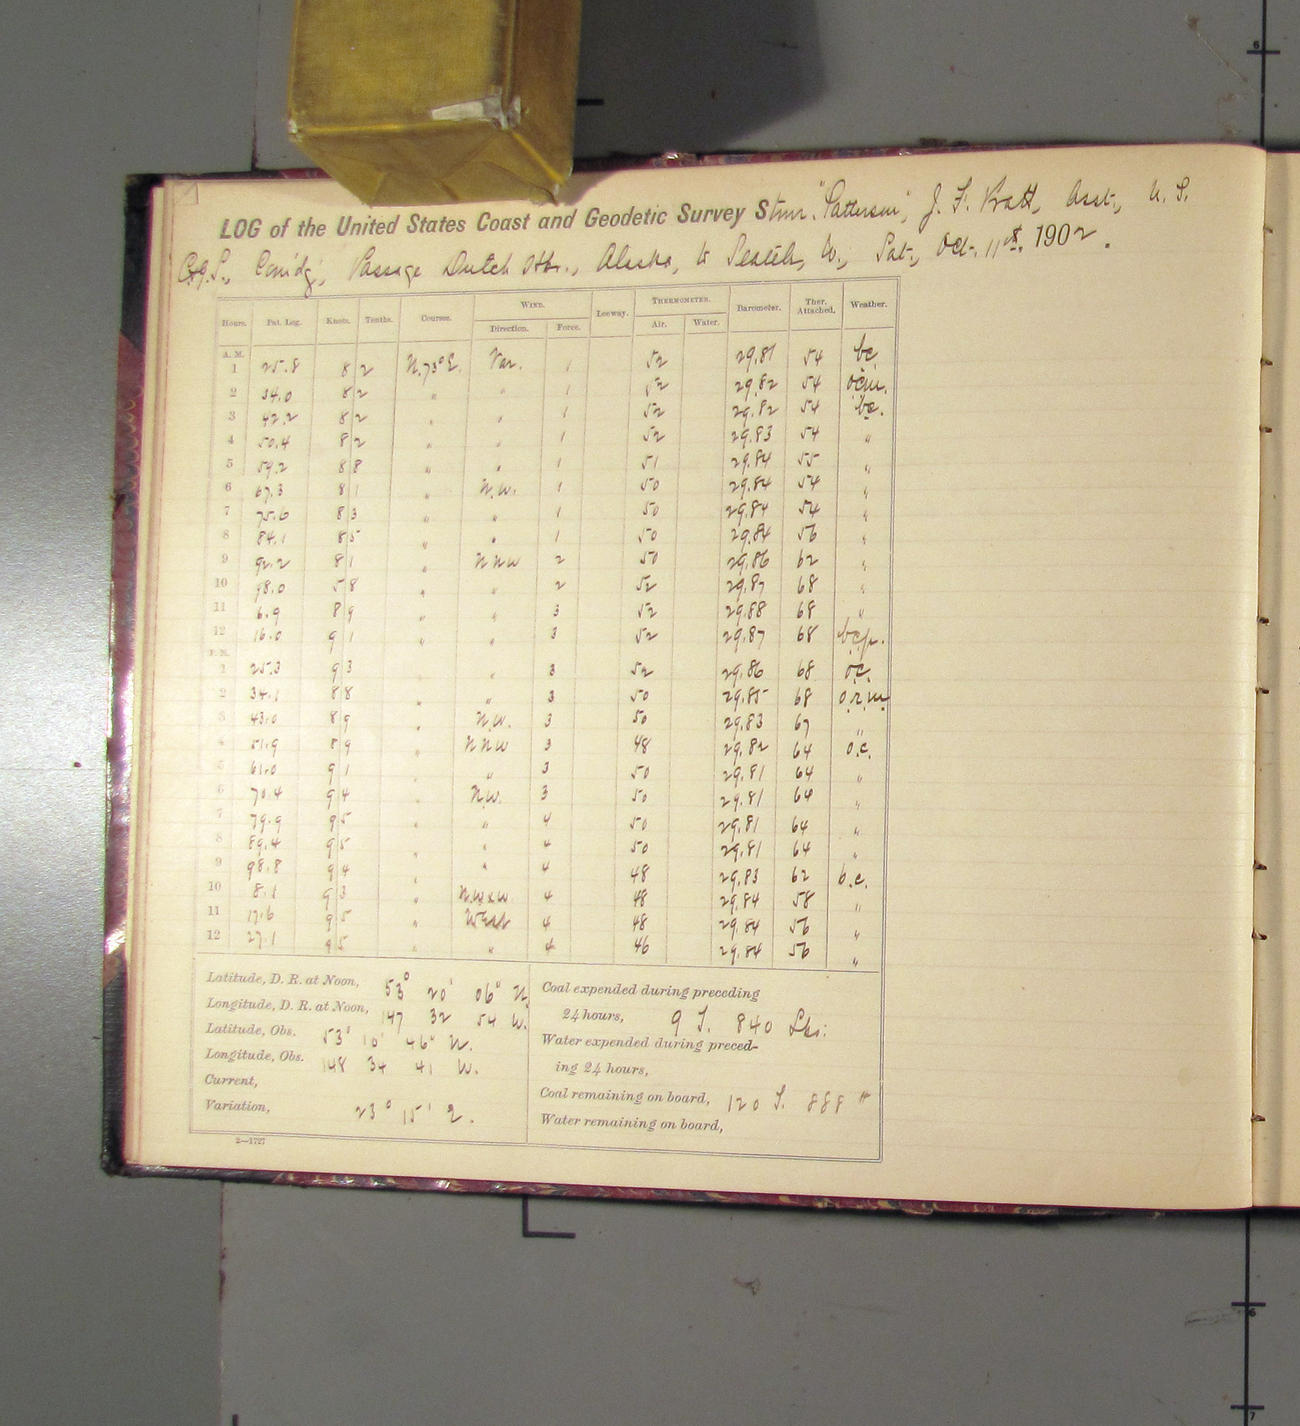 LOG of the United States Coast and Geodetic Survey Stmr. "Patterson", J. F. Pratt, Asst., U. S.
C.&G.S., Com'd'g, Passage Dutch Hbr., Alaska, to Seattle, W., Sat., Oct. 11th, 1902.
Hours. Pat. Log. Knots. Tenths. Courses. WIND. Leeway. THERMOMETER. Barometer. Ther. Attached. Weather.
Direction. Force. Air. Water.
A. M.
1 25.8 8 2 N.73°E. Var. 1 52 29.81 54 bc
2 34.0 8 2 " " 1 52 29.82 54 ocm.
3 42.2 8 2 " " 1 52 29.82 54 bc.
4 50.4 8 2 " " 1 52 29.83 54 "
5 59.2 8 8 " " 1 51 29.84 55 "
6 67.3 8 1 " N.W. 1 50 29.84 54 "
7 75.6 8 3 " " 1 50 29.84 54 "
8 84.1 8 5 " " 1 50 29.84 56 "
9 92.2 8 1 " NNW 2 50 29.86 62 "
10 98.0 5 8 " " 2 52 29.87 68 "
11 6.9 8 9 " " 3 52 29.88 68 "
12 16.0 9 1 " " 3 52 29.87 68 bcp.
P. M.
1 25.3 9 3 " 3 52 29.86 68 oc.
2 34.1 8 8 " " 3 50 29.85 68 o.r.m
3 43.0 8 9 " N.W. 3 50 29.83 67 "
4 51.9 8 9 " NNW 3 48 29.82 64 o.c.
5 61.0 9 1 " " 3 50 29.81 64 "
6 70.4 9 4 " NW. 3 50 29.81 64 "
7 79.9 9 5 " " 4 50 29.81 64 "
8 89.4 9 5 " " 4 50 29.81 64 "
9 98.8 9 4 " " 4 48 29.83 62 b.c.
10 8.1 9 3 " N.W.x.W. 4 48 29.84 58 "
11 17.6 9 5 " West 4 48 29.84 56 "
12 27.1 9 5 " " 4 46 29.84 56 "
Latitude, D. R. at Noon, 53° 20' 06" N
Longitude, D. R. at Noon, 147 32 54 W.
Latitude, Obs. 53° 10' 46" N.
Longitude, Obs. 148 34 41 W.
Current,
Variation, 23° 15' E.
Coal expended during preceding
24 hours, 9 T. 840 Lbs.
Water expended during preced-
ing 24 hours,
Coal remaining on board, 120 T. 888 "
Water remaining on board,
2—1727